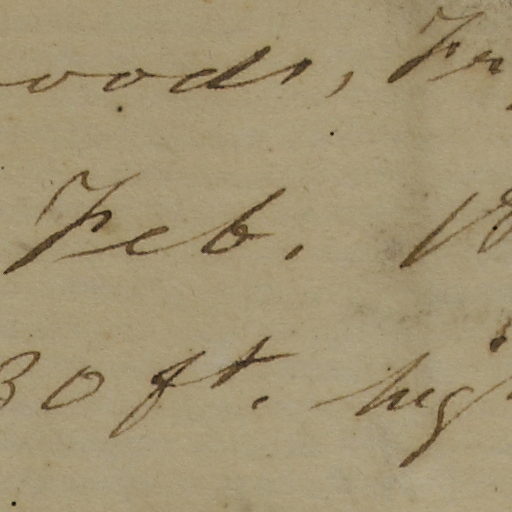 oods, Fr
Feb. 18
30 ft. high